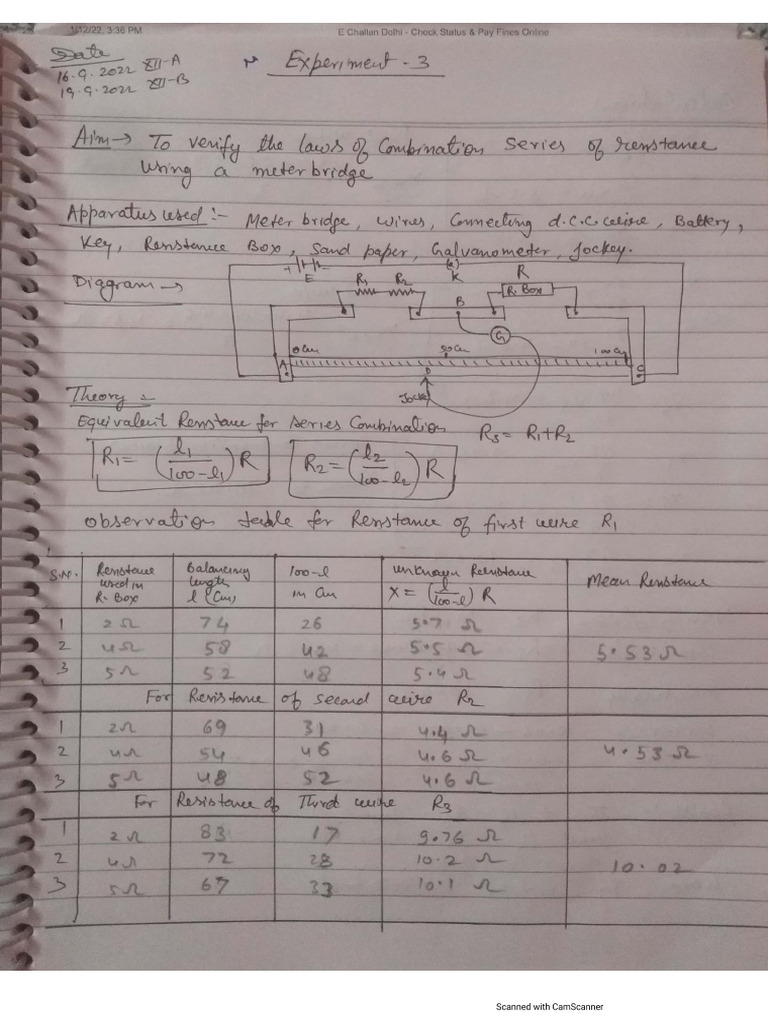 1/12/22, 3:36 PM E Challan Delhi - Check Status & Pay Fines Online
Date
16.9.2022 XII-A
19.9.2022 XII-B
Experiment - 3
Aim → To verify the laws of Combination series of resistance
Using a meterbridge
Apparatus used :- Meter bridge, wires, Connecting d.c.c. wire, Battery,
Key, Resistance Box, Sand paper, Galvanometer, Jockey.
Diagram →
+ E R1 R2 (•) K R
R. Box
B
G
0 Cm 50 Cm 100 Cm
A D C
Jockey
Theory :-
Equivalent Resistance for series Combination R3 = R1+R2
R1 = (l1/100-l1) R R2 = (l2/100-l2) R
Observation table for Resistance of first wire R1
S.N. Resistance used in R. Box Balancing length l (Cm) 100-l in Cm Unknown Resistance X = (l/100-l) R Mean Resistance
1 2Ω 74 26 5.7 Ω
2 4Ω 58 42 5.5 Ω 5.53Ω
3 5Ω 52 48 5.4 Ω
For Resistance of second wire R2
1 2Ω 69 31 4.4 Ω
2 4Ω 54 46 4.6 Ω 4.53Ω
3 5Ω 48 52 4.6 Ω
For Resistance of Third wire R3
1 2Ω 83 17 9.76 Ω
2 4Ω 72 28 10.2 Ω 10.02
3 5Ω 67 33 10.1 Ω
Scanned with CamScanner